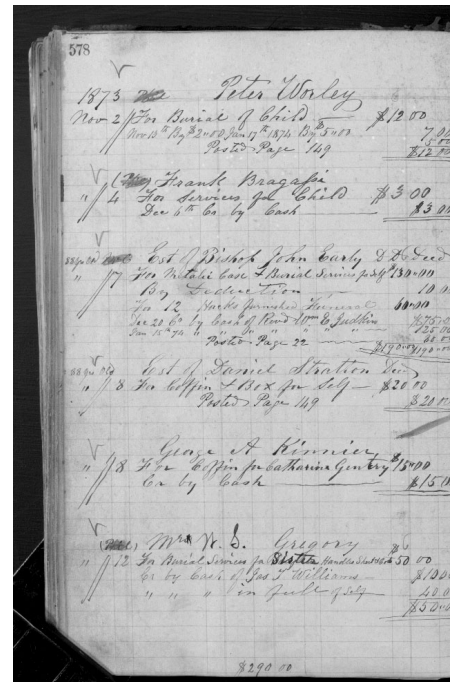 578
1873 Peter Worley
Nov 2 For Burial of Child $12 00
Nov 13th By $2"00 Jan 17th 1874 By $5"00 7 00
5 00
Posted Page 149 $12 00
Frank Bragassi
" 4 For Services for Child $3 00
Dec 6th Cr by Cash $3 00
88 yrs old Est of Bishop John Early D.D. Deed
" 7 For Metalic Case & Burial Servises for Self $130"00
By Deduction 10.00
For 12 Hacks furnished Funeral 60"00
Dec 20 Cr by Cash of Revd Wm E Judkin
Jan 15th 74 " " " 25 00
" Posted Page 22 $190.00 190.00
88 yrs Old Est of Daniel Stratton Dec
" 8 For Coffin & Box for Self $20.00
Posted Page 149 $20 00
George A Kinnier
" 8 For Coffin for Catharine Gentry $15"00
Cr by Cash $15 0
Mrs W. S. Gregory
" 12 For Burial Services for Sister Handles 50 00
Cr by Cash of Jas T Williams $10 0
" " " in full of Self 40 0
$50 00
$290 00